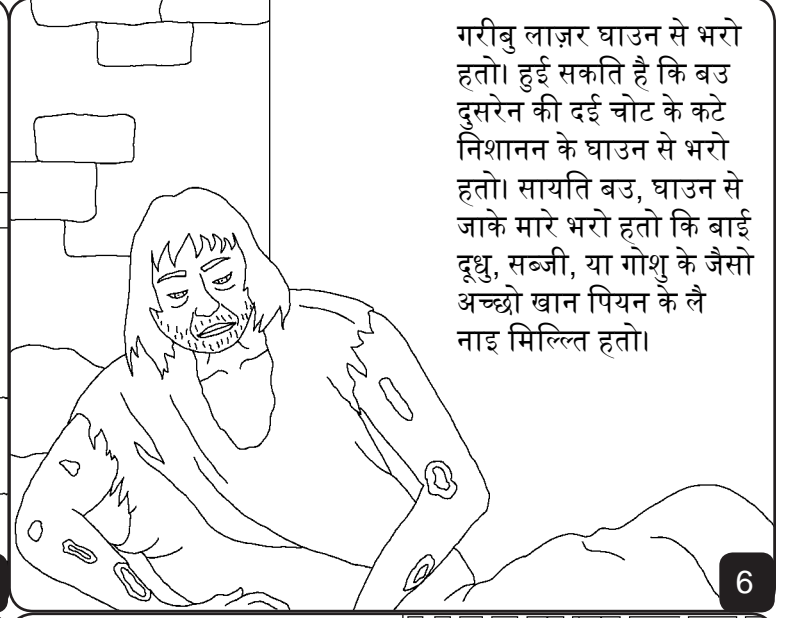 गरीबु लाज़र घाउन से भरो
हतो। हुई सकति है कि बउ
दुसरेन की दई चोट के कटे
निशानन के घाउन से भरो
हतो। सायति बउ, घाउन से
जाके मारे भरो हतो कि बाई
दूधु, सब्जी, या गोशु के जैसो
अच्छो खान पियन के लै
नाइ मिल्ल्ति हतो।
6